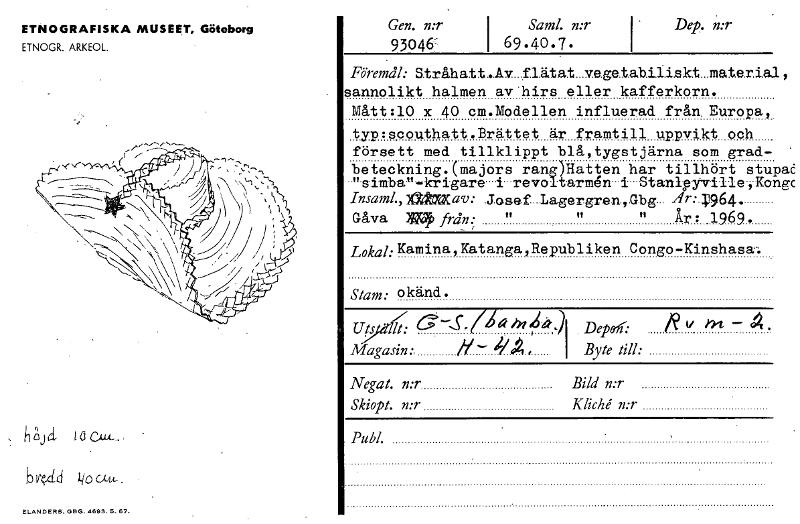 ETNOGRAFISKA MUSEET, Göteborg
ETNOGR. ARKEOL.
höjd 10 cm.
bredd 40 cm.
ELANDERS. GBG. 4693. S. 67.
Gen. n:r Saml. n:r Dep. n:r
93046 69.40.7.
Föremål: Stråhatt.Av flätat vegetabiliskt material,
sannolikt halmen av hirs eller kafferkorn.
Mått:10 x 40 cm.Modellen influerad från Europa,
typ:scouthatt.Brättet är framtill uppvikt och
försett med tillklippt blå,tygstjärna som grad-
beteckning.(majors rang)Hatten har tillhört stupad
"simba"-krigare i revoltarmén i Stanleyville,Kongo
Insaml., av: Josef Lagergren,Gbg År: 1964.
Gåva från: " " " År: 1969.
Lokal: Kamina,Katanga,Republiken Congo-Kinshasa.
Stam: okänd.
Utställt: G-S.(bamba.) Depon: Rvm-2.
Magasin: H-42. Byte till:
Negat. n:r Bild n:r
Skiopt. n:r Kliché n:r
Publ.